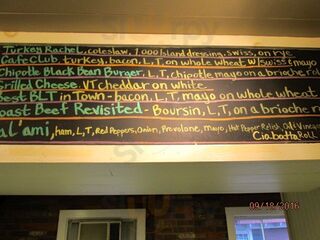 Turkey Rachel, coleslaw, 1000 Island dressing, swiss, on rye
Cafe Club, turkey, bacon, L, T, on whole wheat w/ Swiss & mayo
Chipotle Black Bean Burger, L, T, chipotle mayo on a brioche rol
Grilled Cheese, VT cheddar on white
Best BLT in Town - bacon, L, T, mayo on whole wheat
oast Beef Revisited - Boursin, L, T, on a brioche r
al'ami, ham, L, T, Red Peppers, Onion, Provolone, Mayo, Hot Pepper Relish, Oil & Vinegar
Ciabatta Roll
09/18/2016